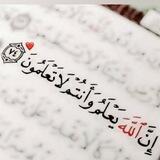 إِنَّ ٱللَّهَ يَعْلَمُ وَأَنتُمْ لَا تَعْلَمُونَ ٧٤